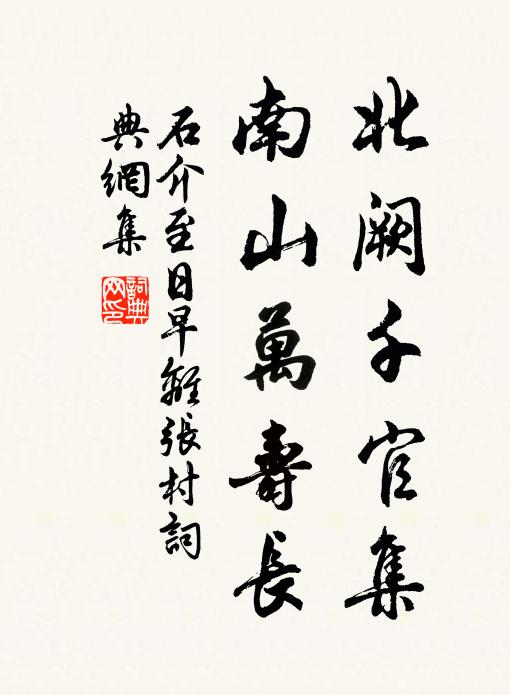 北阙千官集
南山萬壽長
石介至日早離張村詞
典網集
詞典
网印